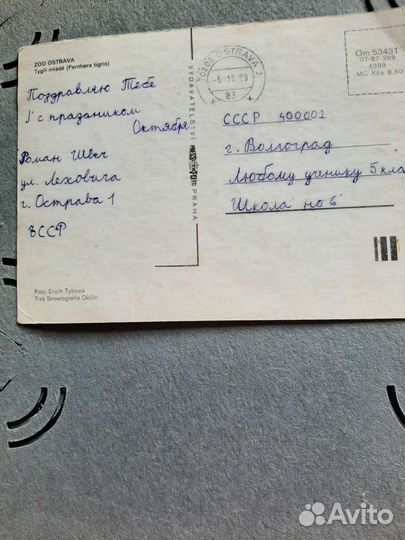 ZOO OSTRAVA
Tygří mládě (Panthera tigris)
Поздравляю Тебе
с праздником
Октября
Роман Швеч
ул. Леховича
г. Острава 1
ЧССР
Foto Erich Tylínek
Tisk Severografia Děčín
VYDAVATELSTVÍ
PRAHA
70200 OSTRAVA 2
83
Om 53431
07-07-289
1389
MC Kčs 0,80
СССР 400001
г. Волгоград
Любому ученику 5 кла
Школа но 6
Avito